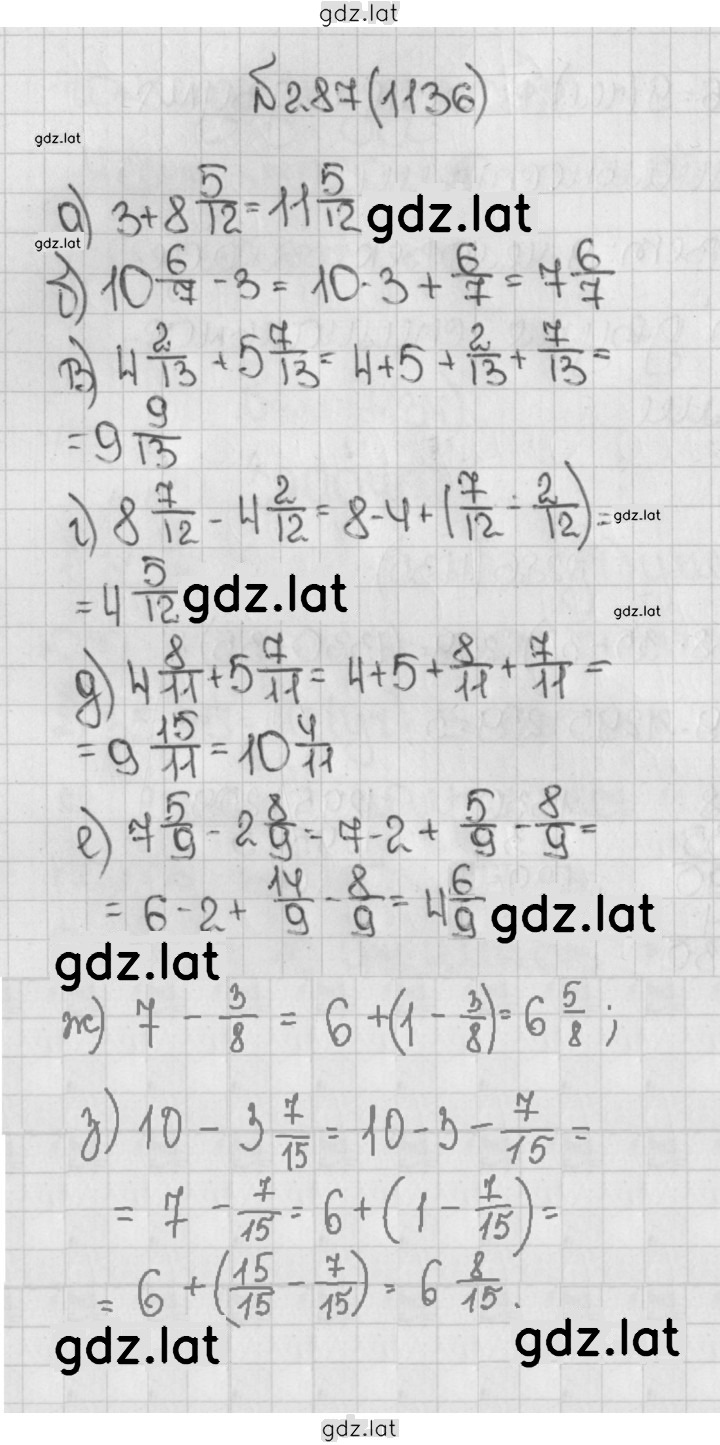 gdz.lat
№287(1136)
gdz.lat
а) 3+8 5/12 = 11 5/12 gdz.lat
gdz.lat
б) 10 6/7 - 3 = 10-3 + 6/7 = 7 6/7
в) 4 2/13 + 5 7/13 = 4+5 + 2/13 + 7/13 =
= 9 9/13
г) 8 7/12 - 4 2/12 = 8-4+(7/12 - 2/12) = gdz.lat
= 4 5/12 gdz.lat gdz.lat
д) 4 8/11 + 5 7/11 = 4+5+ 8/11 + 7/11 =
= 9 15/11 = 10 4/11
е) 7 5/9 - 2 8/9 = 7-2 + 5/9 - 8/9 =
= 6-2+ 14/9 - 8/9 = 4 6/9 gdz.lat
gdz.lat
ж) 7 - 3/8 = 6 +(1 - 3/8) = 6 5/8 ;
з) 10 - 3 7/15 = 10-3- 7/15 =
= 7 - 7/15 = 6+(1 - 7/15) =
= 6 +(15/15 - 7/15) = 6 8/15.
gdz.lat gdz.lat
gdz.lat